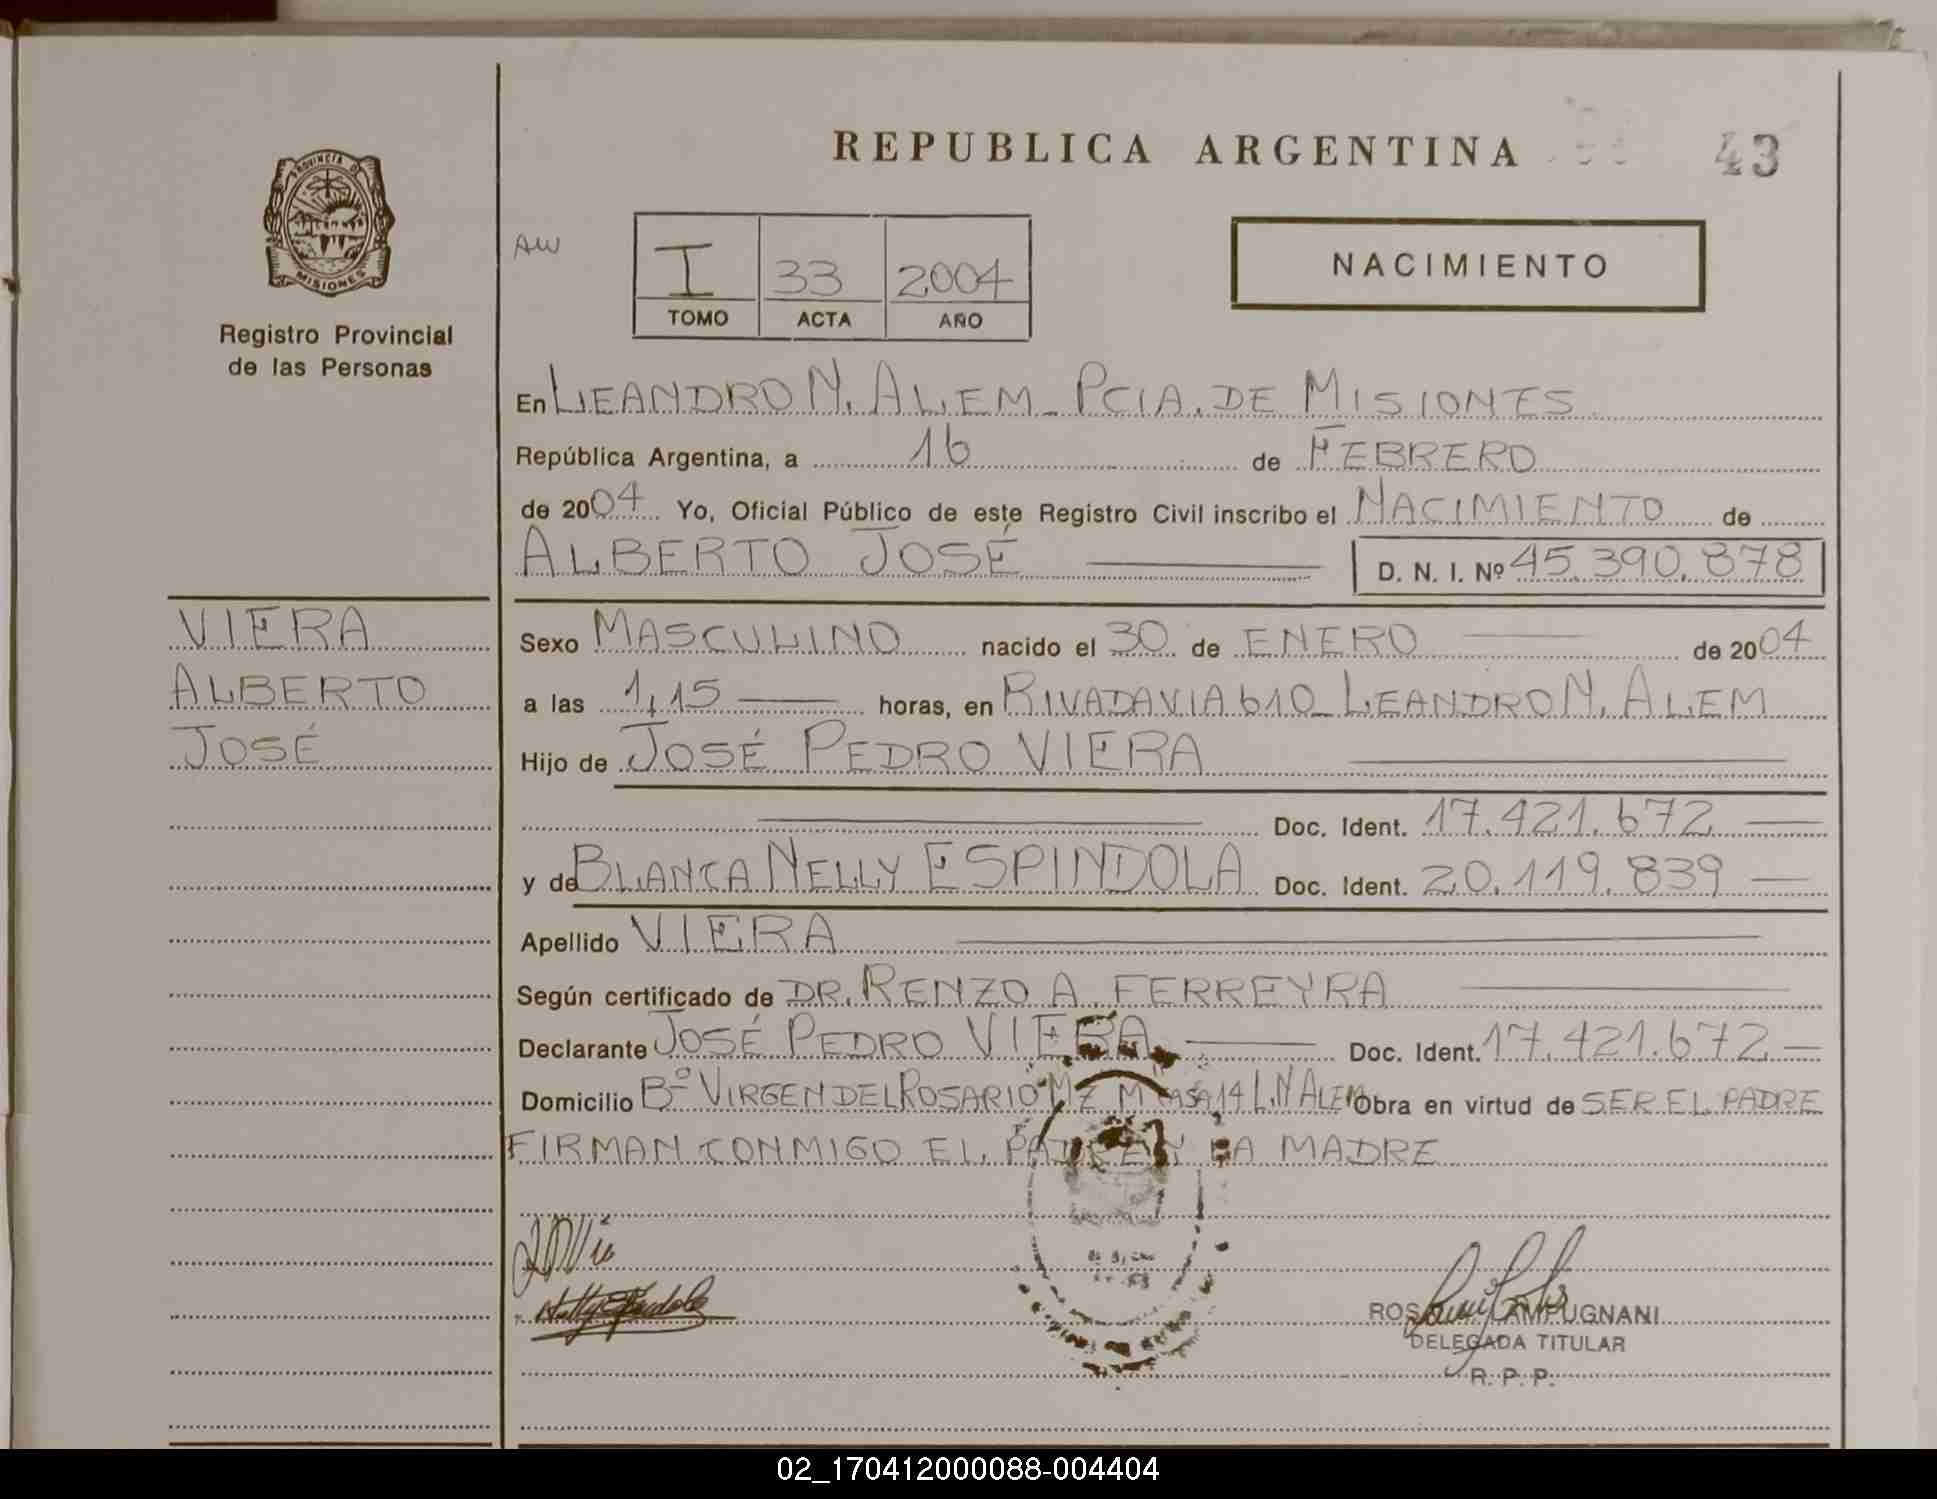 REPUBLICA ARGENTINA
43
PROVINCIA D
MISIONES
Registro Provincial
de las Personas
AW
I 33 2004
TOMO ACTA AÑO
NACIMIENTO
En LEANDRO N. ALEM - PCIA. DE MISIONES
República Argentina, a 16 de FEBRERO
de 2004 Yo, Oficial Público de este Registro Civil inscribo el NACIMIENTO de
ALBERTO JOSÉ D. N. I. Nº 45.390.878
VIERA
ALBERTO
JOSÉ
Sexo MASCULINO nacido el 30 de ENERO de 2004
a las 1,15 horas, en RIVADAVIA 610 - LEANDRO N. ALEM
Hijo de JOSÉ PEDRO VIERA
Doc. Ident. 17.421.672
y de BLANCA NELLY ESPINDOLA Doc. Ident. 20.119.839
Apellido VIERA
Según certificado de DR. RENZO A. FERREYRA
Declarante JOSÉ PEDRO VIERA Doc. Ident. 17.421.672
Domicilio Bº VIRGEN DEL ROSARIO MZ M CASA 14 L.N ALEM Obra en virtud de SER EL PADRE
FIRMAN CONMIGO EL PADRE Y LA MADRE
CAMPUGNANI
DELEGADA TITULAR
R. P. P.
02_170412000088-004404